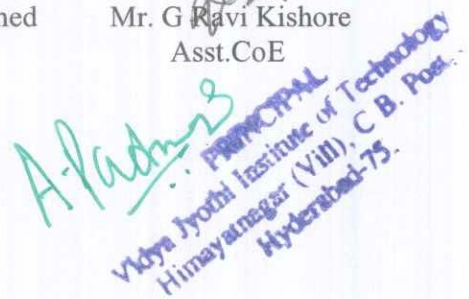 ned Mr. G Ravi Kishore
Asst.CoE
PRINCIPAL
Vidya Jyothi Institute of Technology
Himayatnagar (Vill), C B. Post.
Hyderabad-75.